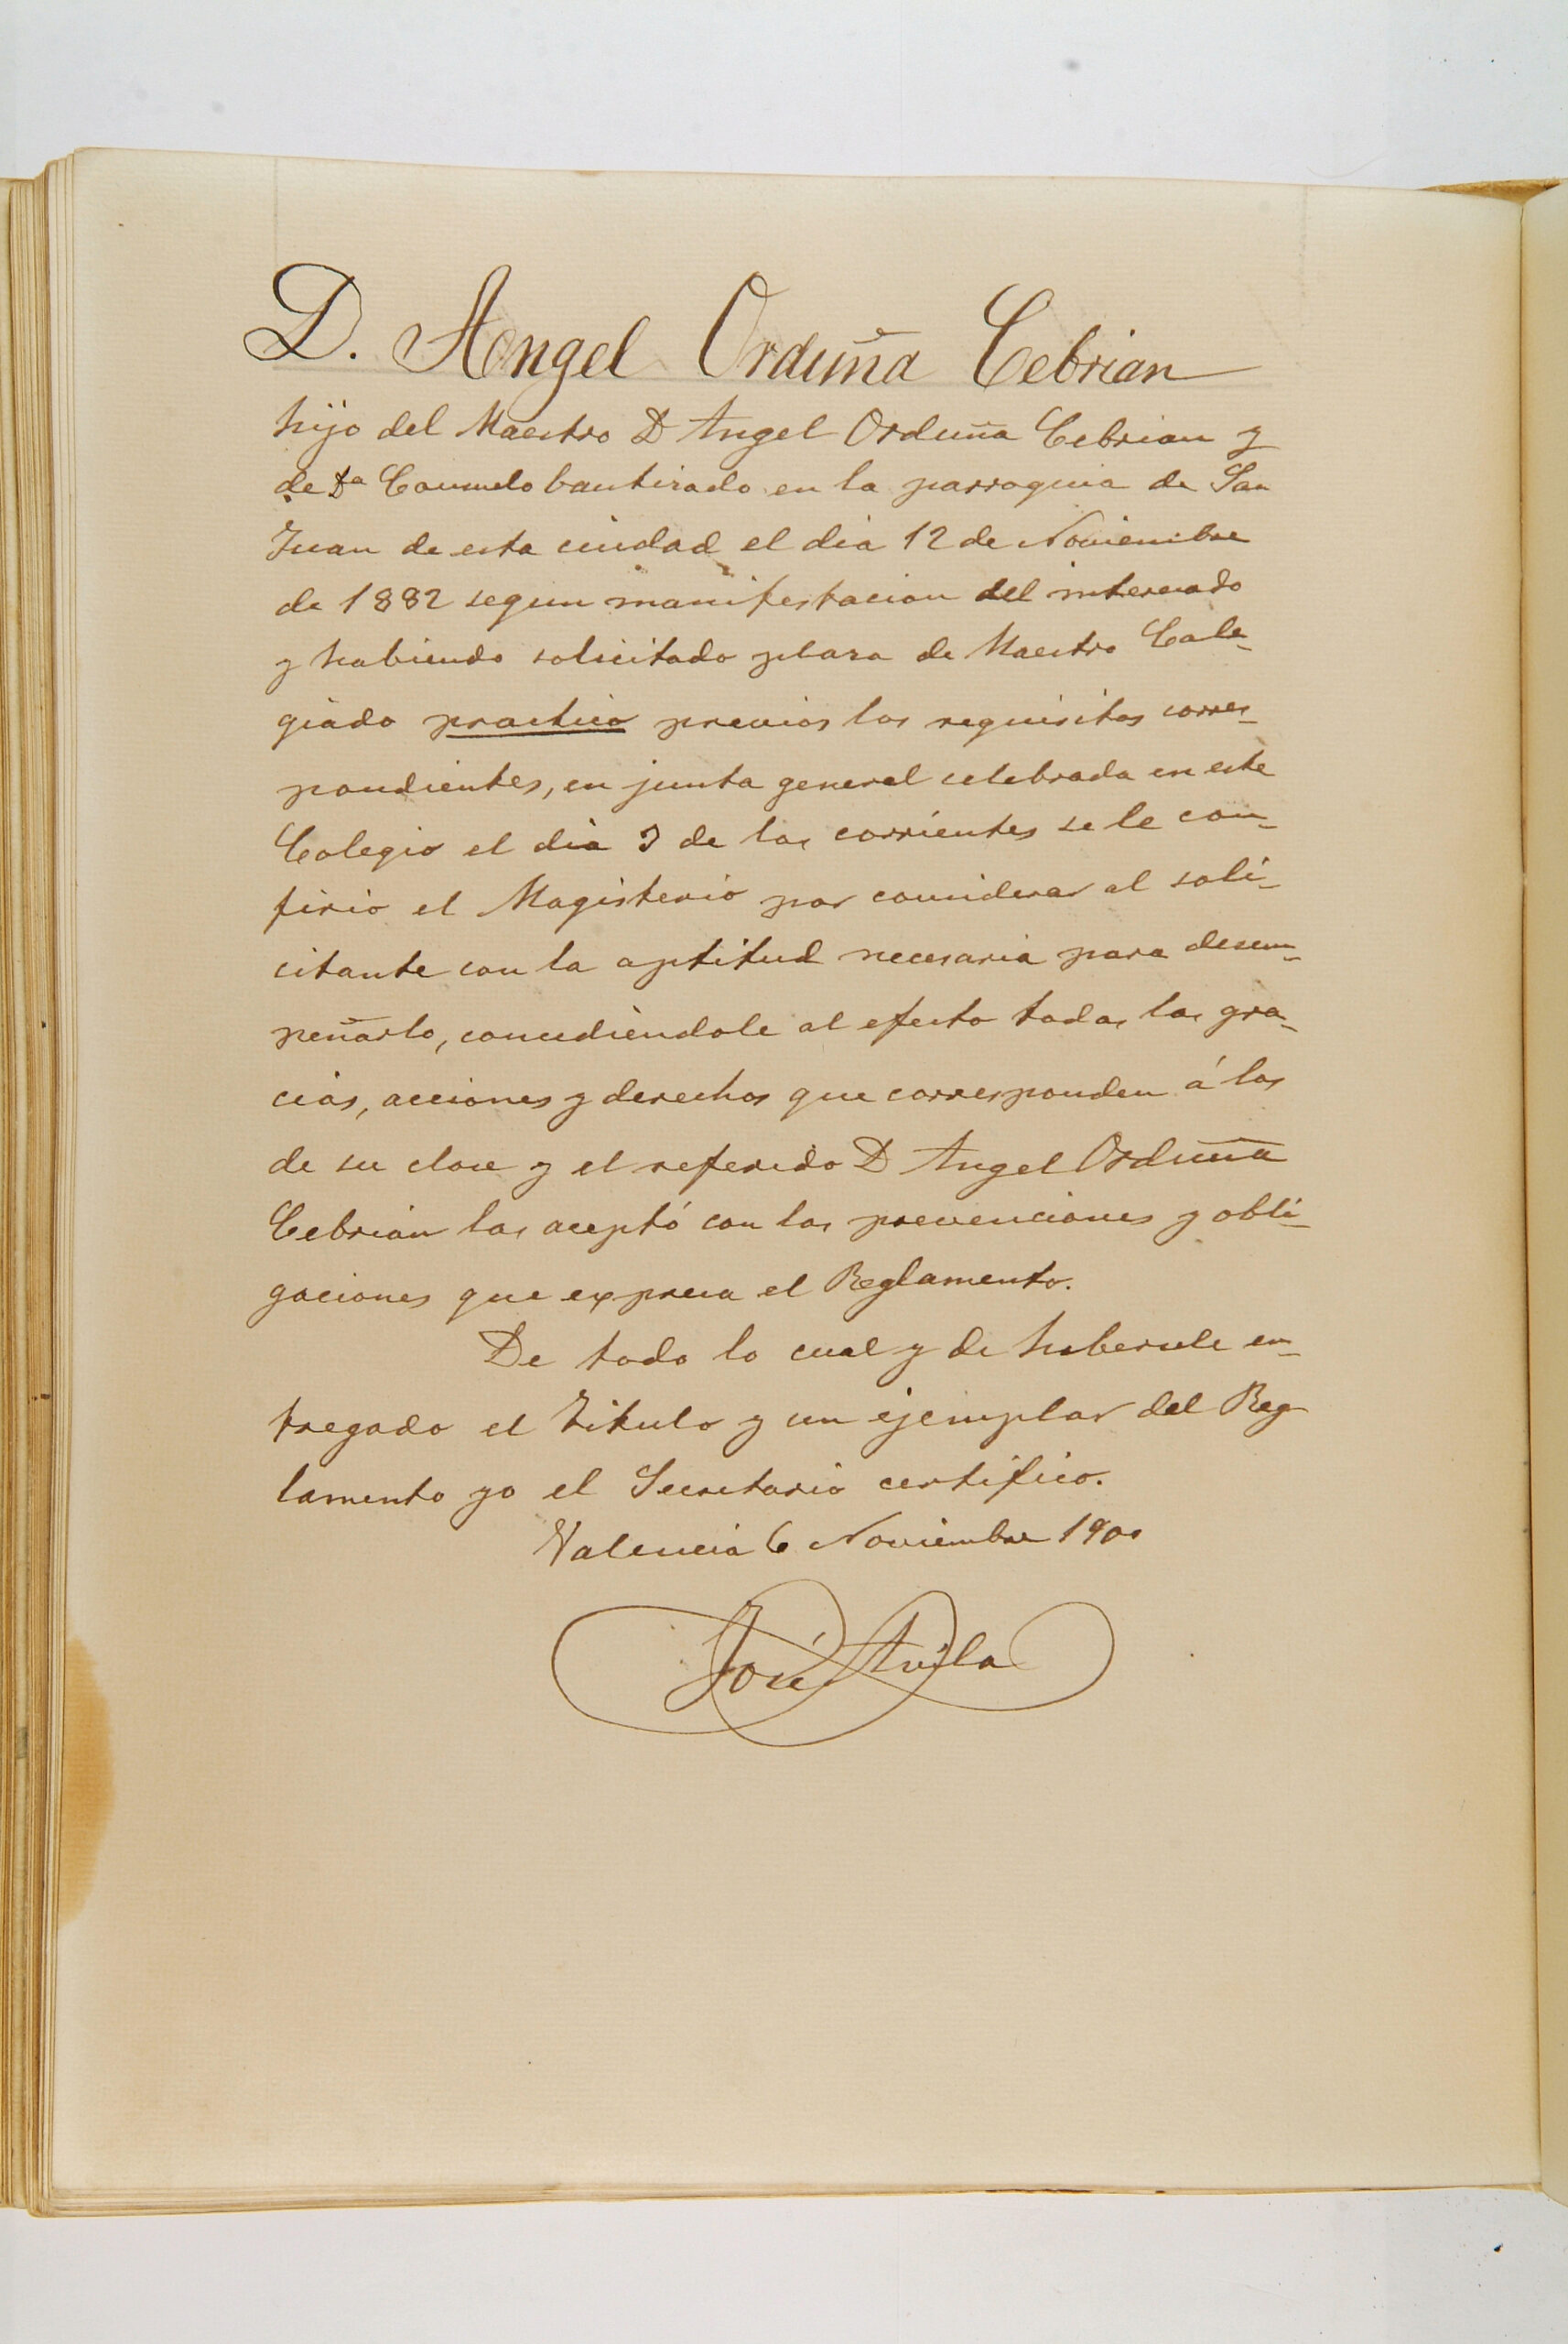 D. Angel Orduña Cebrian
hijo del Maestro D Angel Orduña Cebrian y
de Dª Consuelo bautizado en la parroquia de San
Juan de esta ciudad el dia 12 de Noviembre
de 1882 segun manifestacion del interesado
y habiendo solicitado plaza de Maestro Cole-
giado practico previos los requisitos corres-
pondientes, en junta general celebrada en este
Colegio el dia 3 de los corrientes se le con-
firio el Magisterio por considerar al soli-
citante con la aptitud necesaria para desem-
peñarlo, concediendole al efecto todas las gra-
cias, acciones y derechos que corresponden á los
de su clase y el referido D Angel Orduña
Cebrian las aceptó con las prevenciones y obli-
gaciones que expresa el Reglamento.
De todo lo cual y de habersele en-
tregado el Titulo y un ejemplar del Reg-
lamento yo el Secretario certifico.
Valencia 6 Noviembre 1900
José Avila